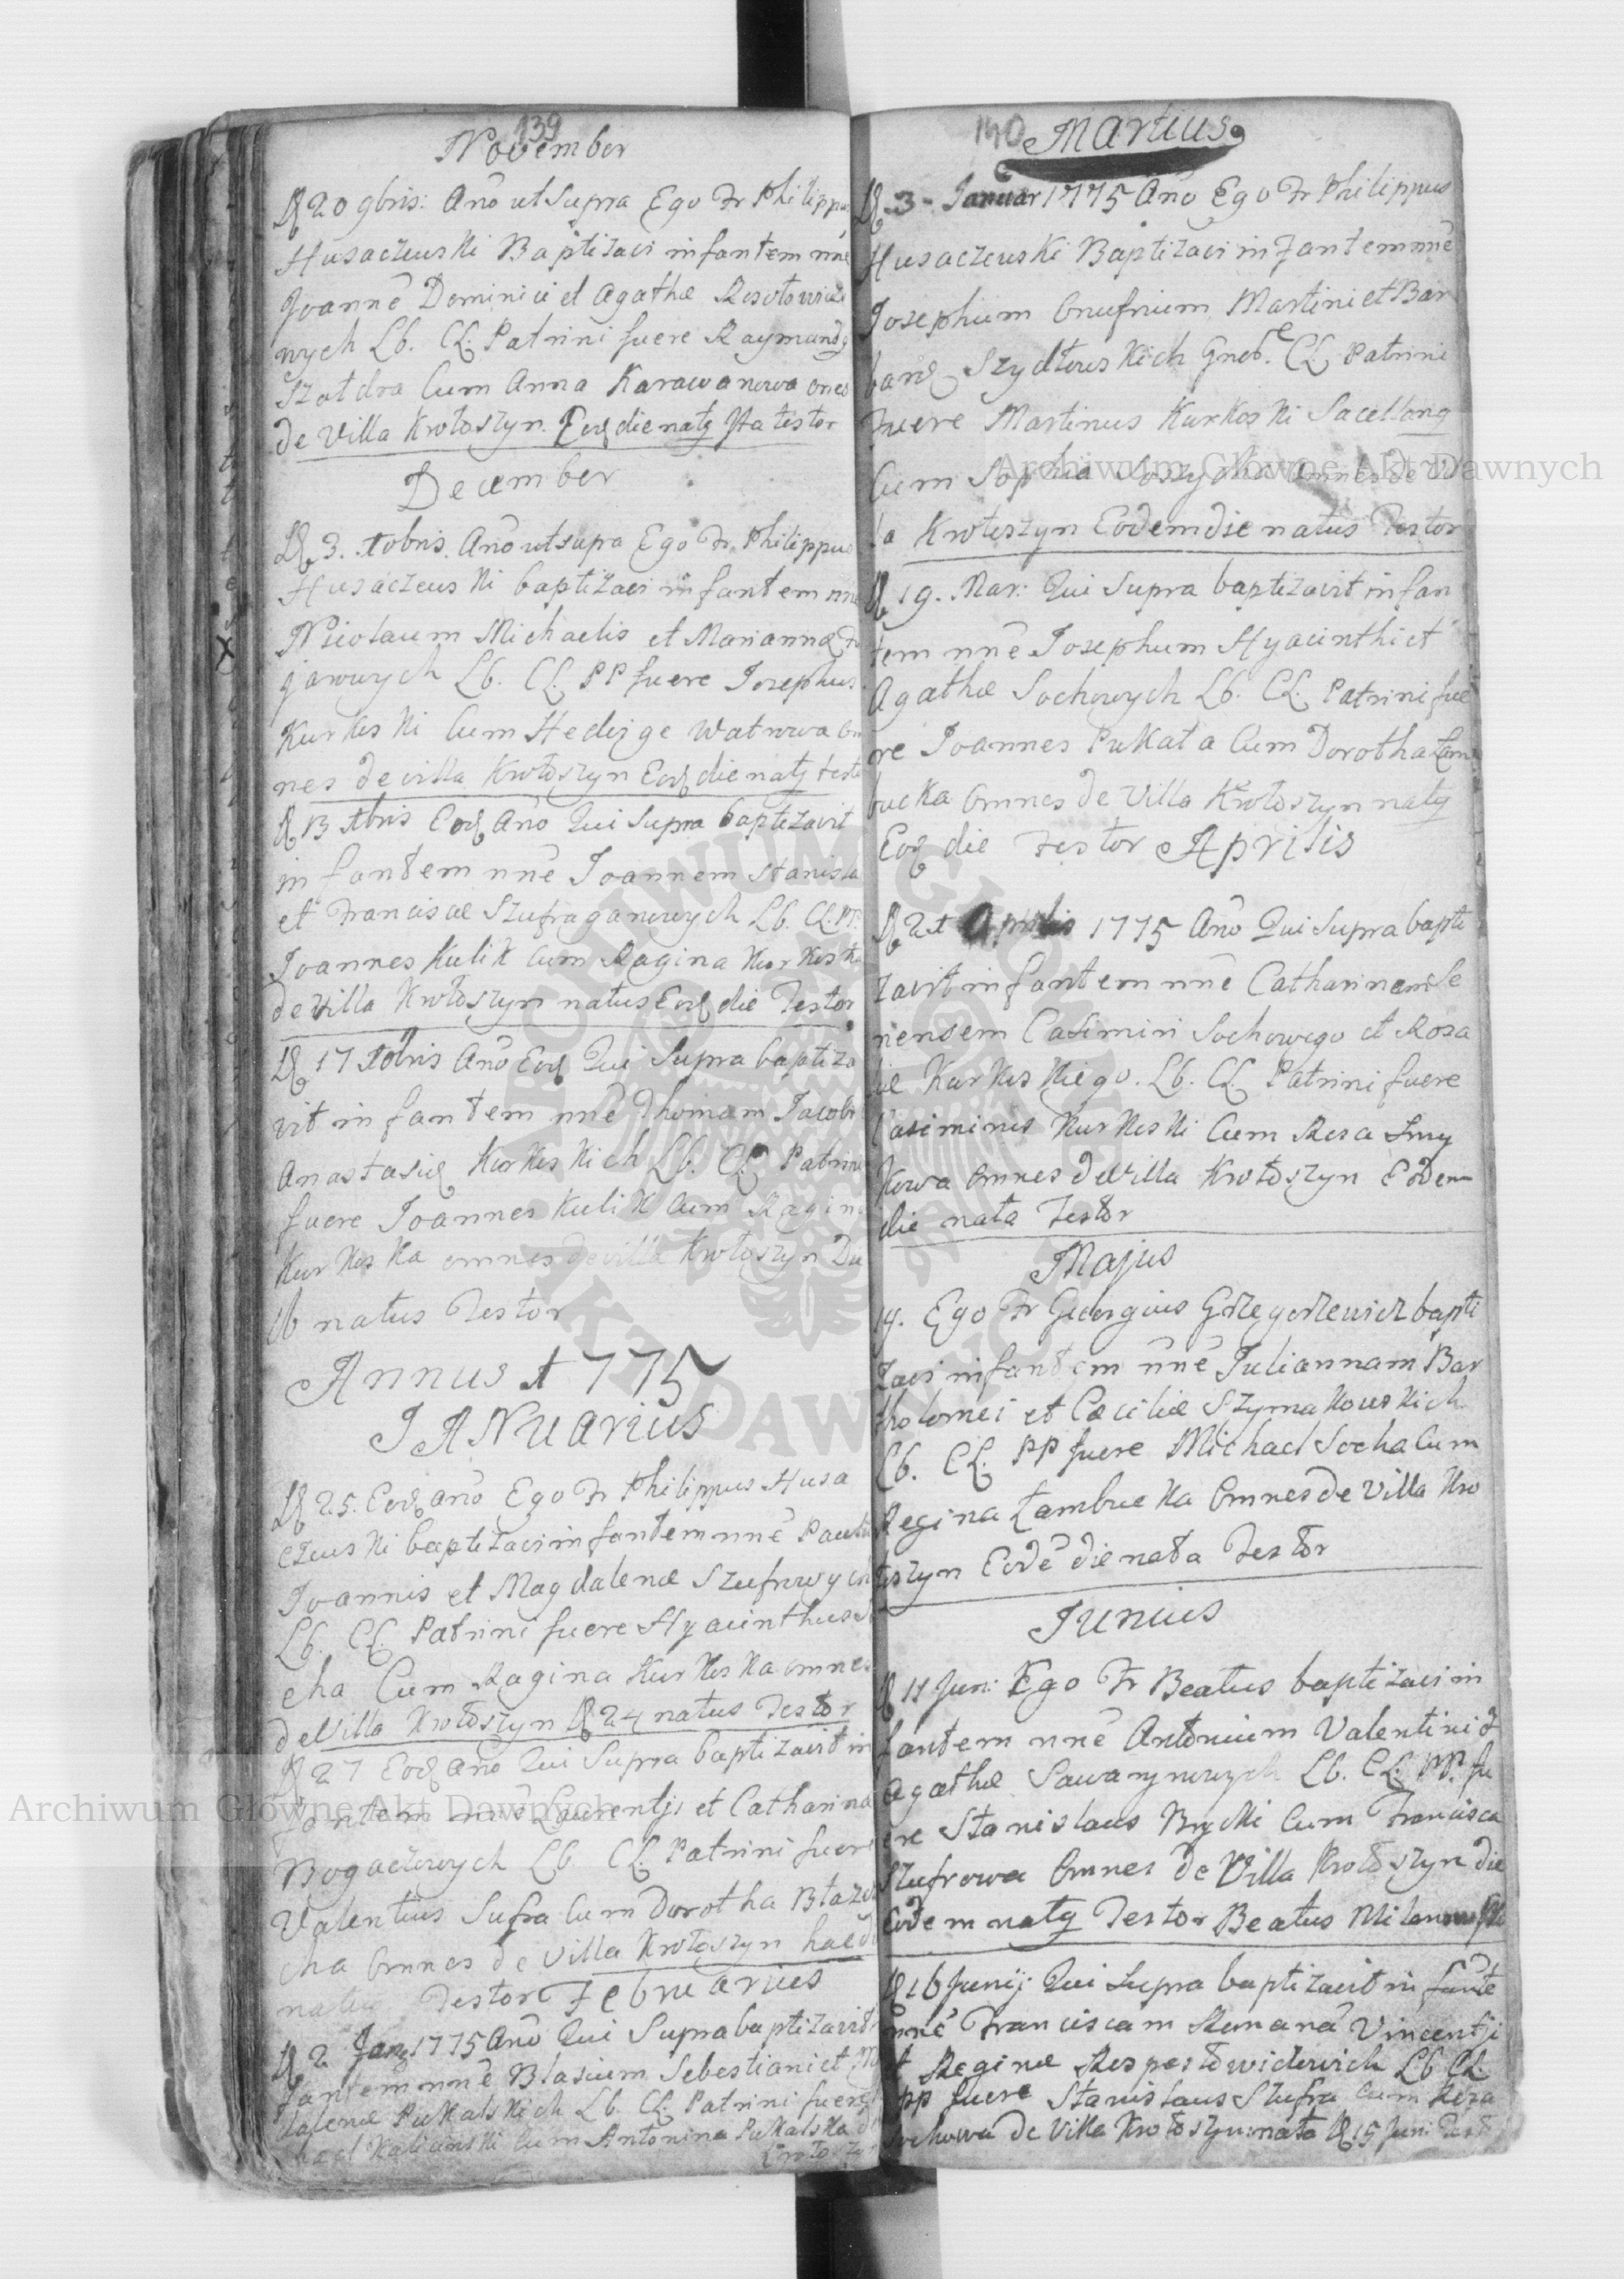 139
November
D 20 9bris: Ano ut Supra Ego Fr Philippus
Husaczewski Baptizavi infantem nne
Joanne Dominici et Agathæ
wych Lb. CL. Patrini fuere Raymundg
Szatdra Cum Anna Karawanowa
de Villa Krotoszyn Eod die natg Ita testor
December
D 3. Xbris. Ano ut supra Ego Fr Philippus
Husaczewski baptizavi infantem nne
Nicolaum Michaelis et Marianna
jawwych Lb. CL. PP fuere Josephus
Kurkoski Cum Hedizge Watrowa
nes de villa Krotoszyn Eod die natg
D 13 Xbris Eod Ano Qui Supra baptizavit
infantem nne Joannem Stanisla
et Francisæ Szufraganowych Lb. CL. PP.
Joannes Kulik Cum Ragina Kurkoska
de villa Krotoszyn natus Eod die Testor
D 17 Xbris Ano Eod Qui Supra baptiza
vit infantem nne Thomam Jacobi
Anastasiæ Kurkoskich Lb. CL. Patrini
fuere Joannes Kulik Cum Ragina
Kurkoska omnes de villa Krotoszyn
16 natus Testor
Annus 1775
JANuarius
D 25. Eod ano Ego Fr Philippus Husa
czewski baptizavi infantem nne
Joannis et Magdalenæ Szufrowych
Lb. CL. Patrini fuere Hyacinthus
cha Cum Ragina Kurkoska omnes
de Villa Krotoszyn D 24 natus Testor
D 27 Eod Ano Qui Supra baptizavit in
fantem nne Laurentji et Catharina
Bogaczowych Lb CL. Patrini fuere
Valentius Sufra Cum Dorotha
cha Omnes de Villa Krotoszyn
Testor Februarius
D 2 1775 Ano Qui Supra baptizavit
fantem nne Blasium Sebestiani et
Pukalskich Lb. CL. Patrini fuere
Kalianski Cum Antonina Pukalska
140 Martius
D 3 Januar 1775 Ano Ego Fr Philippus
Husaczewski Baptizavi infantem nne
Josephum Onufrium Martini et Bar
baræ Szydtowskich CL Patrini
Fuere Martinus Kurkoski
Cum Sophia omnes de Vil
la Krotoszyn Eodem die natus Testor
D 19. Mar: Qui Supra baptizavit infan
tem nne Josephum Hyacinthi et
Agathæ Sochowych Lb. CL. Patrini fue
re Joannes Pukata Cum Dorotha Lam
bucka Omnes de Villa Krotoszyn natg
Eod die Testor Aprilis
Aprilis 1775 Ano Qui Supra bapti
zavit infantem nne Catharinam Se
nensem Casimiri Sochowego et Rosa
liæ Kurkoskiego. Lb. CL. Patrini fuere
Casimirus Kurkoski Cum Rosa
kowa Omnes de Villa Krotoszyn Eodem
die nata Testor
Majus
14. Ego Fr Georgius Grzegorzewicz bapti
zavi infantem nne Juliannam Bar
tholomei et Cæciliæ Szymakowskich
Lb. CL. PP fuere Michael Socha Cum
Regina Lambucka Omnes de Villa Kro
toszyn Eode die nata Testor
Junius
D 11 Jun: Ego Fr Beatus baptizavi in
fantem nne Antonium Valentini
Agathæ Lb. CL. PP. fu
ere Stanislaus Brycki Cum Francisca
Szufrowa Omnes de Villa Krotoszyn die
Eodem natg Testor Beatus
D 16 Junij Qui supra baptizavit infante
nne Franciscam Romana Vincentji
et Reginæ Lb CL
PP fuere Stanislaus Szufra Cum Roza
Sochowa de Villa Krotoszyn nata D 15 Juni
Archiwum Główne Akt Dawnych
Archiwum Główne Akt Dawnych
ARCHIWUM GŁÓWNE AKT DAWNYCH